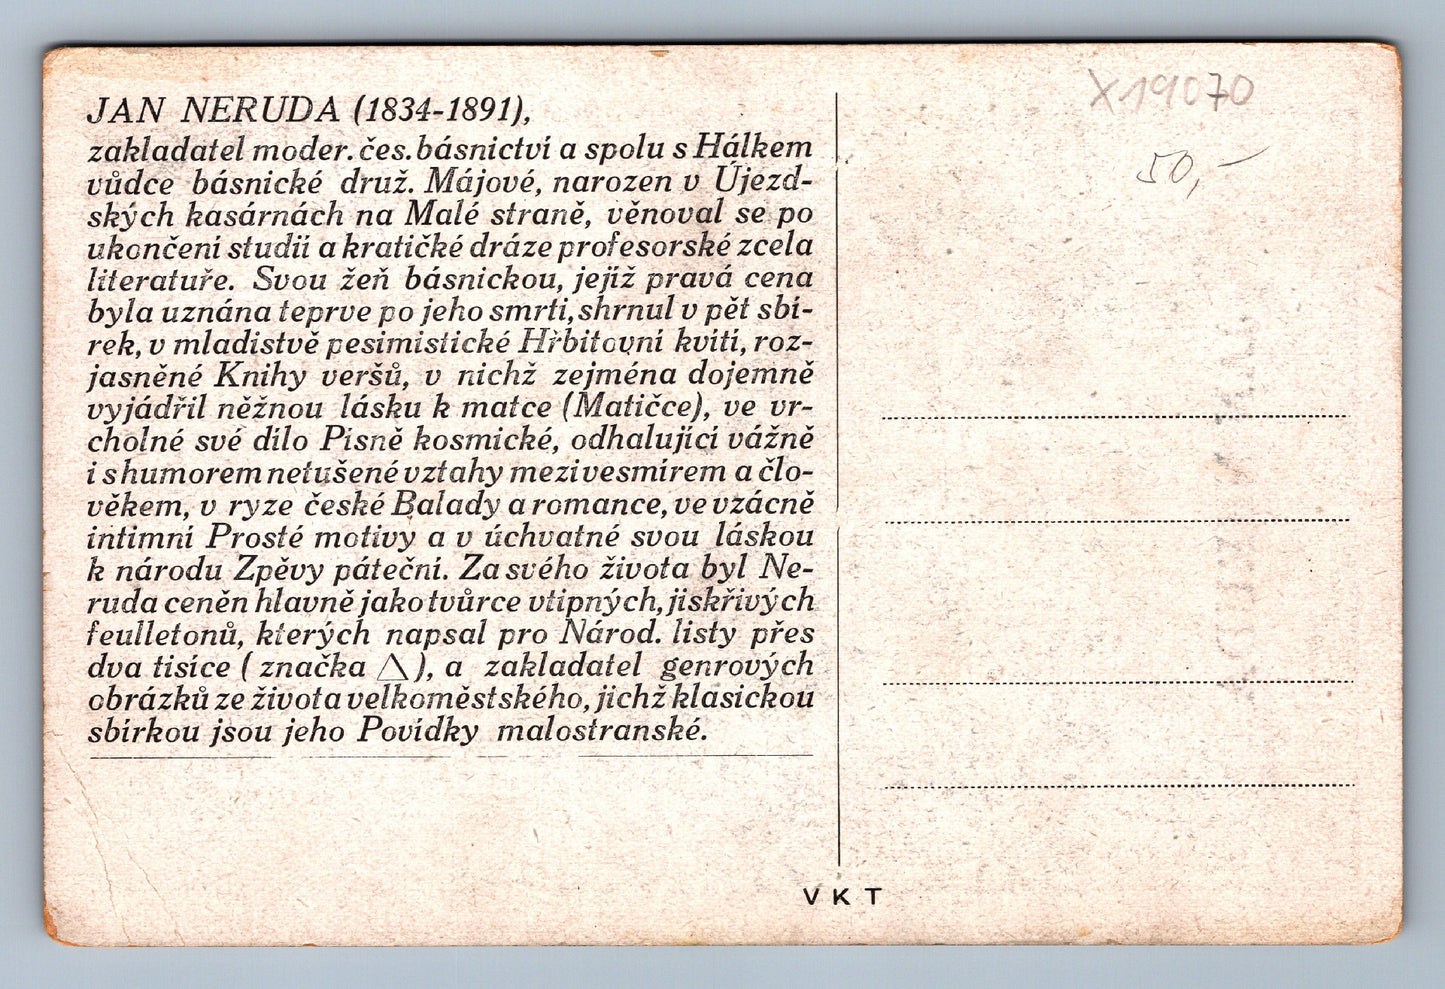 JAN NERUDA (1834-1891),
zakladatel moder. čes. básnictví a spolu s Hálkem
vůdce básnické druž. Májové, narozen v Újezd-
ských kasárnách na Malé straně, věnoval se po
ukončení studií a kratičké dráze profesorské zcela
literatuře. Svou žeň básnickou, jejíž pravá cena
byla uznána teprve po jeho smrti, shrnul v pět sbí-
rek, v mladistvě pesimistické Hřbitovní kvítí, roz-
jasněné Knihy veršů, v nichž zejména dojemně
vyjádřil něžnou lásku k matce (Matičce), ve vr-
cholné své dílo Písně kosmické, odhalující vážně
i s humorem netušené vztahy mezi vesmírem a člo-
věkem, v ryze české Balady a romance, ve vzácně
intimní Prosté motivy a v úchvatné svou láskou
k národu Zpěvy páteční. Za svého života byl Ne-
ruda ceněn hlavně jako tvůrce vtipných, jiskřivých
feulletonů, kterých napsal pro Národ. listy přes
dva tisíce ( značka △ ), a zakladatel genrových
obrázků ze života velkoměstského, jichž klasickou
sbírkou jsou jeho Povídky malostranské.
X19070
50,-
V K T